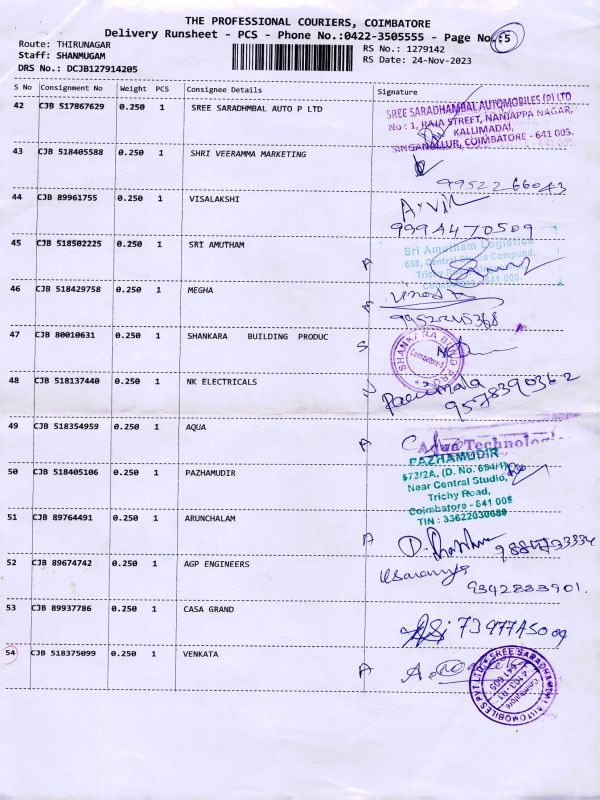 THE PROFESSIONAL COURIERS, COIMBATORE
Delivery Runsheet - PCS - Phone No.:0422-3505555 - Page No.:5
Route: THIRUNAGAR
Staff: SHANMUGAM
DRS No.: DCJB127914205
RS No.: 1279142
RS Date: 24-Nov-2023
S No Consignment No Weight PCS Consignee Details Signature
42 CJB 517867629 0.250 1 SREE SARADHMBAL AUTO P LTD
SREE SARADHAMBAL AUTOMOBILES (P) LTD
No : 1, RAJA STREET, NANJAPPA NAGAR,
KALLIMADAI,
SINGANALLUR, COIMBATORE - 641 005.
43 CJB 518405588 0.250 1 SHRI VEERAMMA MARKETING
9952266043
44 CJB 89961755 0.250 1 VISALAKSHI
9994470509
45 CJB 518502225 0.250 1 SRI AMUTHAM
Sri Amutham Logistics
Coimbatore - 641 005.
46 CJB 518429758 0.250 1 MEGHA
47 CJB 80010631 0.250 1 SHANKARA BUILDING PRODUC
S
48 CJB 518137440 0.250 1 NK ELECTRICALS
9578390362
49 CJB 518354959 0.250 1 AQUA
A
Aqua Technologi
50 CJB 518405106 0.250 1 PAZHAMUDIR
PAZHAMUDIR
573/2A, (D. No. 694/1)
Near Central Studio,
Trichy Road,
Coimbatore - 641 005
TIN : 33622030680
51 CJB 89764491 0.250 1 ARUNCHALAM
A
52 CJB 89674742 0.250 1 AGP ENGINEERS
9342833901.
53 CJB 89937786 0.250 1 CASA GRAND
54 CJB 518375099 0.250 1 VENKATA
A